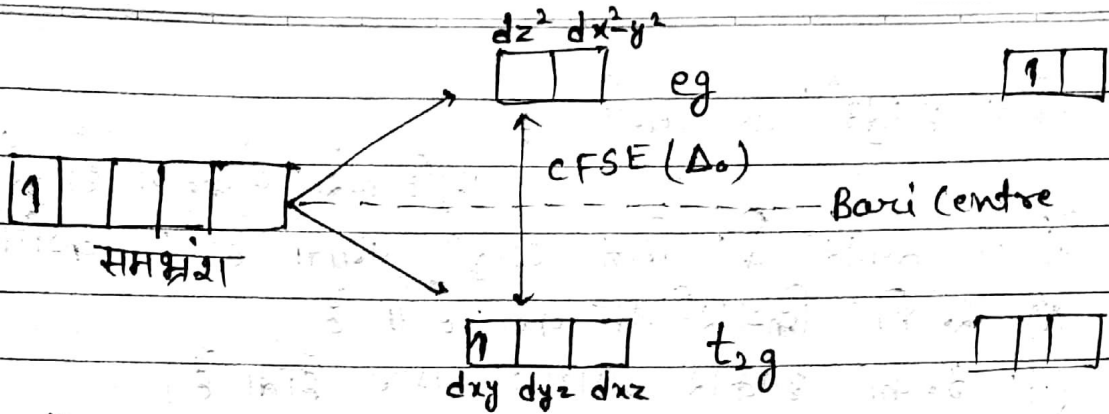 dz² dx²-y²
eg
1
CFSE (Δ₀)
1
Bari Centre
समभ्रंश
1
t₂g
dxy dyz dxz